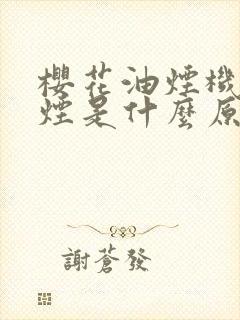 櫻花油煙機
煙是什麼原
謝蒼發